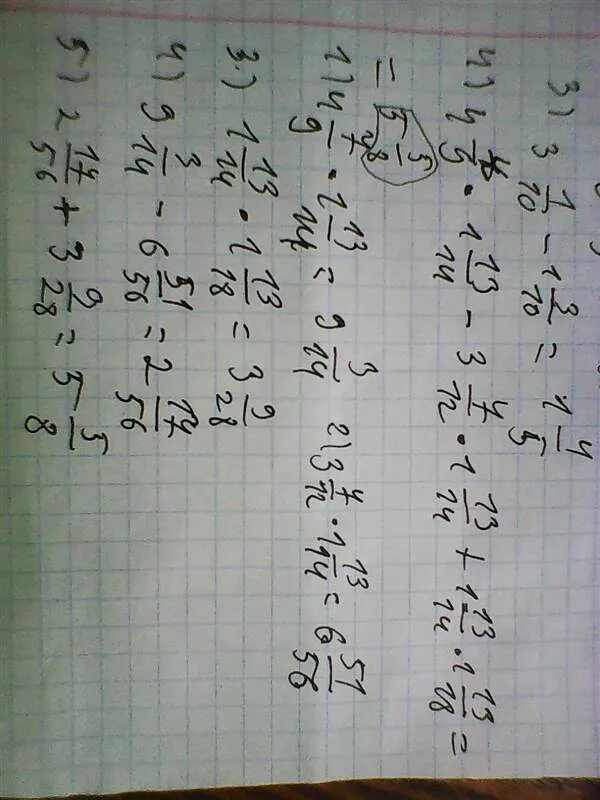 3) 3 1/10 - 1 3/10 = 1 4/5
4) 4 7/9 · 1 13/14 - 3 7/12 · 1 13/14 + 1 13/14 · 1 13/18 =
= 5 5/8
1) 4 7/9 · 1 13/14 = 9 3/14 2) 3 7/12 · 1 13/14 = 6 51/56
3) 1 13/14 · 1 13/18 = 3 9/28
4) 9 3/14 - 6 51/56 = 2 17/56
5) 2 17/56 + 3 9/28 = 5 5/8